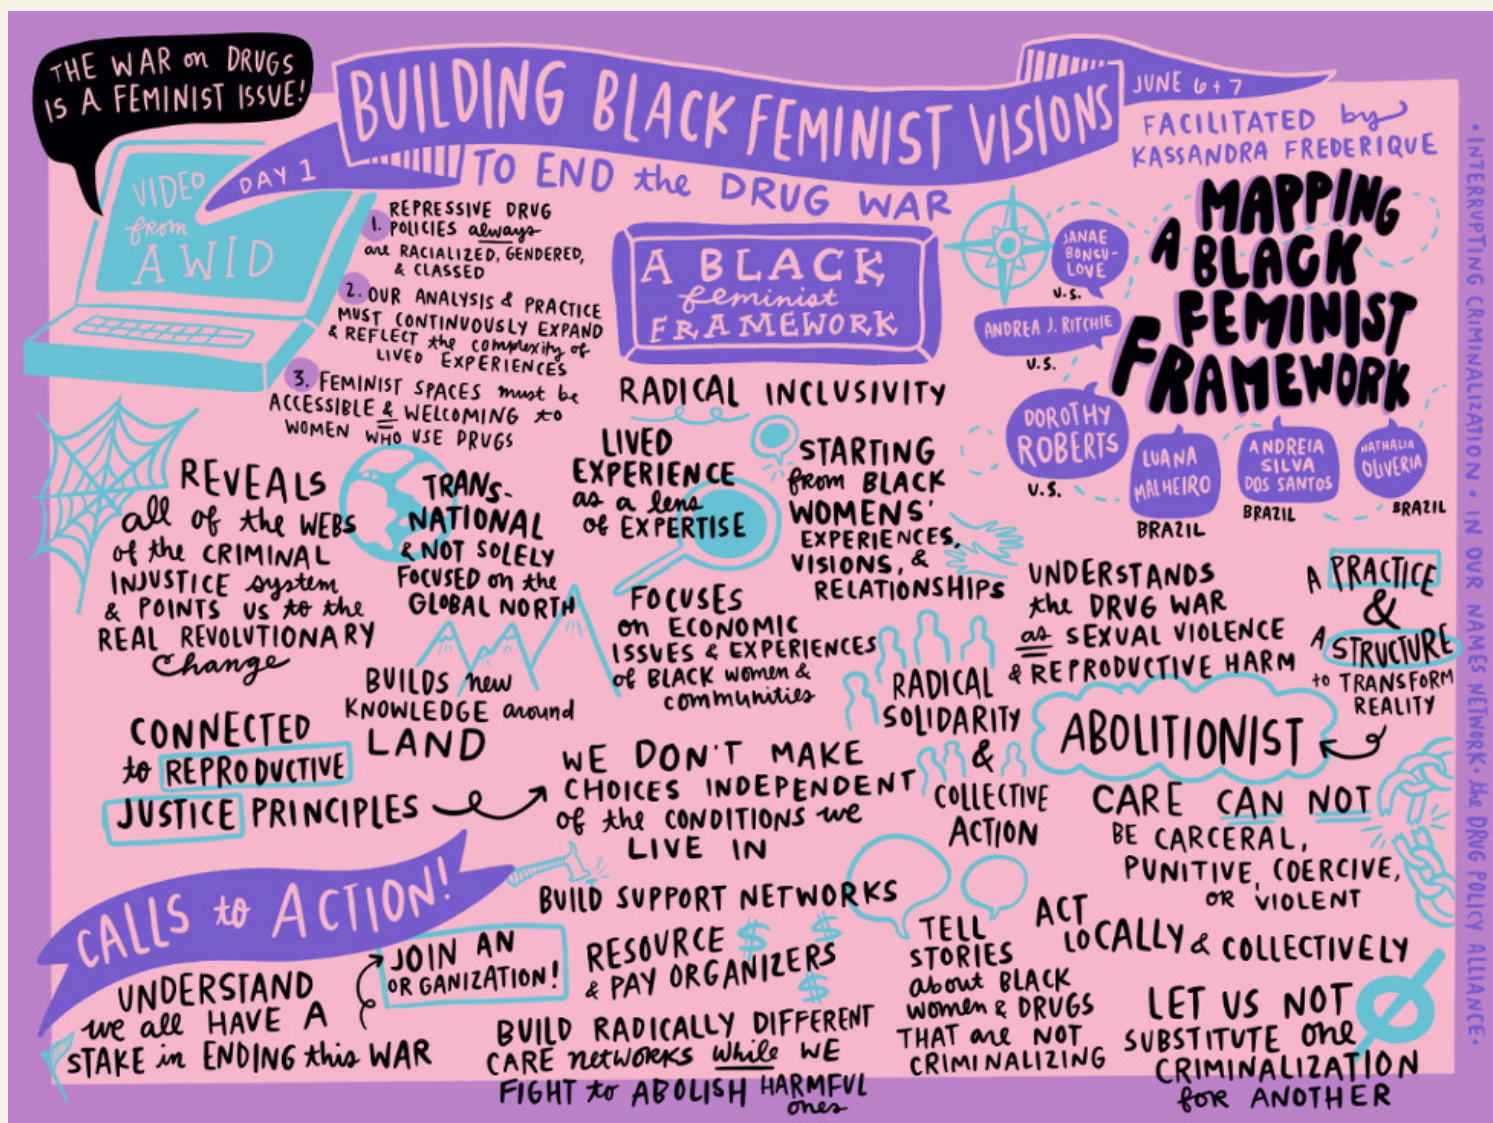 THE WAR on DRUGS
IS A FEMINIST ISSUE!
VIDEO
from
AWID
DAY 1
BUILDING BLACK FEMINIST VISIONS
TO END the DRUG WAR
JUNE 6+7
FACILITATED by
KASSANDRA FREDERIQUE
1. REPRESSIVE DRUG
POLICIES always
are RACIALIZED, GENDERED,
& CLASSED
2. OUR ANALYSIS & PRACTICE
MUST CONTINUOUSLY EXPAND
& REFLECT the complexity of
LIVED EXPERIENCES
3. FEMINIST SPACES must be
ACCESSIBLE & WELCOMING to
WOMEN WHO USE DRUGS
A BLACK
feminist
FRAMEWORK
MAPPING
A BLACK
FEMINIST
FRAMEWORK
JANAE
BONSU-
LOVE
U.S.
ANDREA J. RITCHIE
U.S.
DOROTHY
ROBERTS
U.S.
LUANA
MALHEIRO
BRAZIL
ANDREIA
SILVA
DOS SANTOS
BRAZIL
NATHALIA
OLIVERIA
BRAZIL
RADICAL INCLUSIVITY
REVEALS
all of the WEBS
of the CRIMINAL
INJUSTICE system
& POINTS US to the
REAL REVOLUTIONARY
Change
TRANS-
NATIONAL
& NOT SOLELY
FOCUSED on the
GLOBAL NORTH
LIVED
EXPERIENCE
as a lens
of EXPERTISE
STARTING
from BLACK
WOMENS'
EXPERIENCES,
VISIONS, &
RELATIONSHIPS
FOCUSES
on ECONOMIC
ISSUES & EXPERIENCES
of BLACK women &
communities
UNDERSTANDS
the DRUG WAR
as SEXUAL VIOLENCE
& REPRODUCTIVE HARM
A PRACTICE
&
A STRUCTURE
to TRANSFORM
REALITY
BUILDS new
KNOWLEDGE around
LAND
RADICAL
SOLIDARITY
&
COLLECTIVE
ACTION
ABOLITIONIST
CONNECTED
to REPRODUCTIVE
JUSTICE PRINCIPLES
WE DON'T MAKE
CHOICES INDEPENDENT
of the CONDITIONS we
LIVE IN
CARE CAN NOT
BE CARCERAL,
PUNITIVE, COERCIVE,
OR VIOLENT
CALLS to ACTION!
BUILD SUPPORT NETWORKS
UNDERSTAND
we all HAVE A
STAKE in ENDING this WAR
JOIN AN
ORGANIZATION!
RESOURCE
& PAY ORGANIZERS
BUILD RADICALLY DIFFERENT
CARE networks while WE
FIGHT to ABOLISH HARMFUL
ones
TELL
STORIES
about BLACK
women & DRUGS
THAT are NOT
CRIMINALIZING
ACT
LOCALLY & COLLECTIVELY
LET US NOT
SUBSTITUTE one
CRIMINALIZATION
for ANOTHER
• INTERRUPTING CRIMINALIZATION • IN OUR NAMES NETWORK • the DRUG POLICY ALLIANCE •